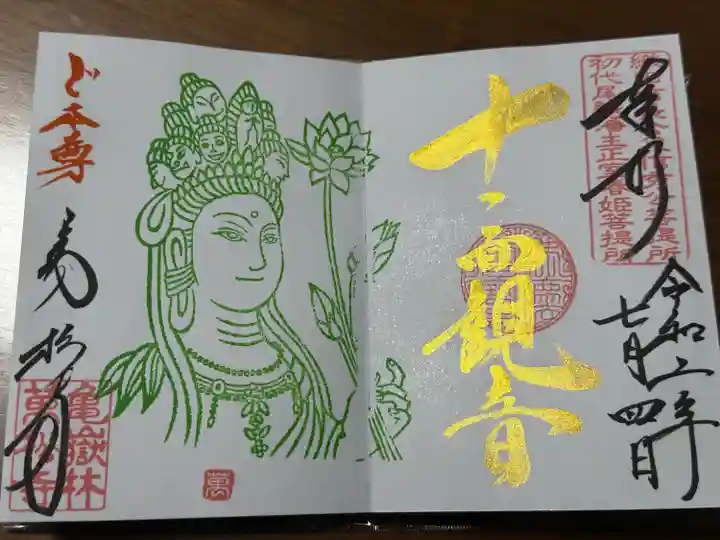 奉拝
初代尾張藩主正室春姫菩提所
令和二年
七月四日
十一面観音
ど本尊
萬松寺
龜嶽林
萬松寺
萬